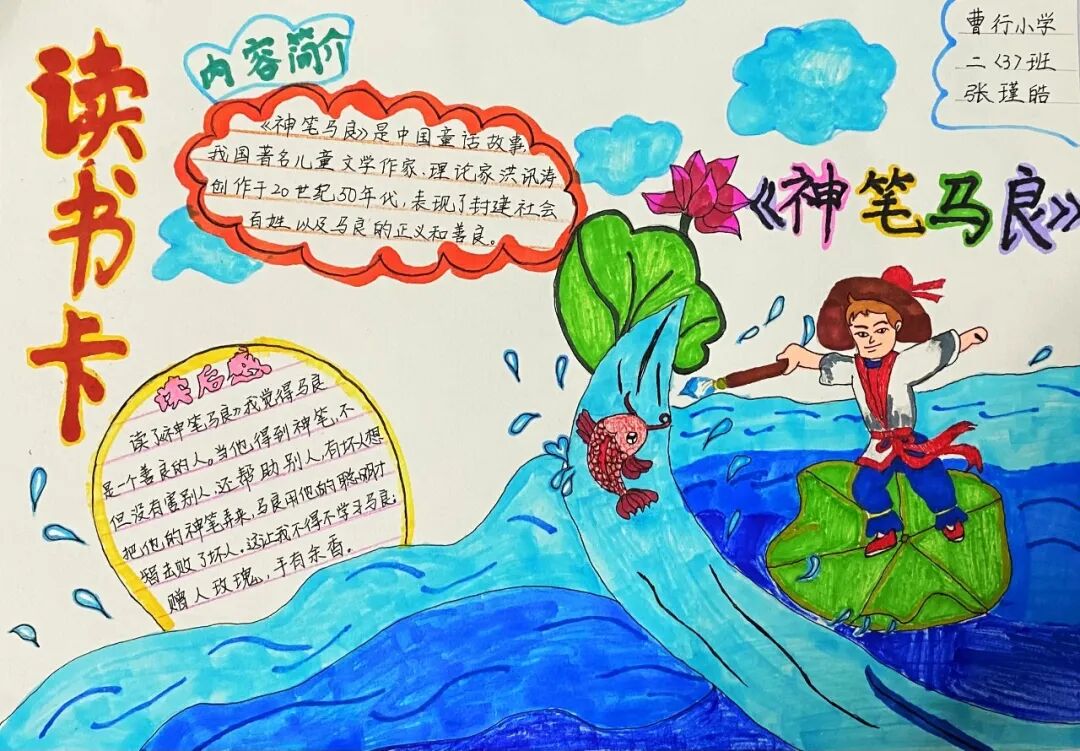 读书卡
内容简介
《神笔马良》是中国童话故事,
我国著名儿童文学作家、理论家洪汛涛
创作于20世纪50年代,表现了封建社会
百姓以及马良的正义和善良。
曹行小学
二〈3〉班
张瑾皓
《神笔马良》
读后感
读了《神笔马良》我觉得马良
是一个善良的人。当他得到神笔,不
但没有害别人,还帮助别人,有坏人想
把他的神笔弄来,马良用他的聪明才
智击败了坏人。这让我不得不学习马良:
赠人玫瑰,手有余香。